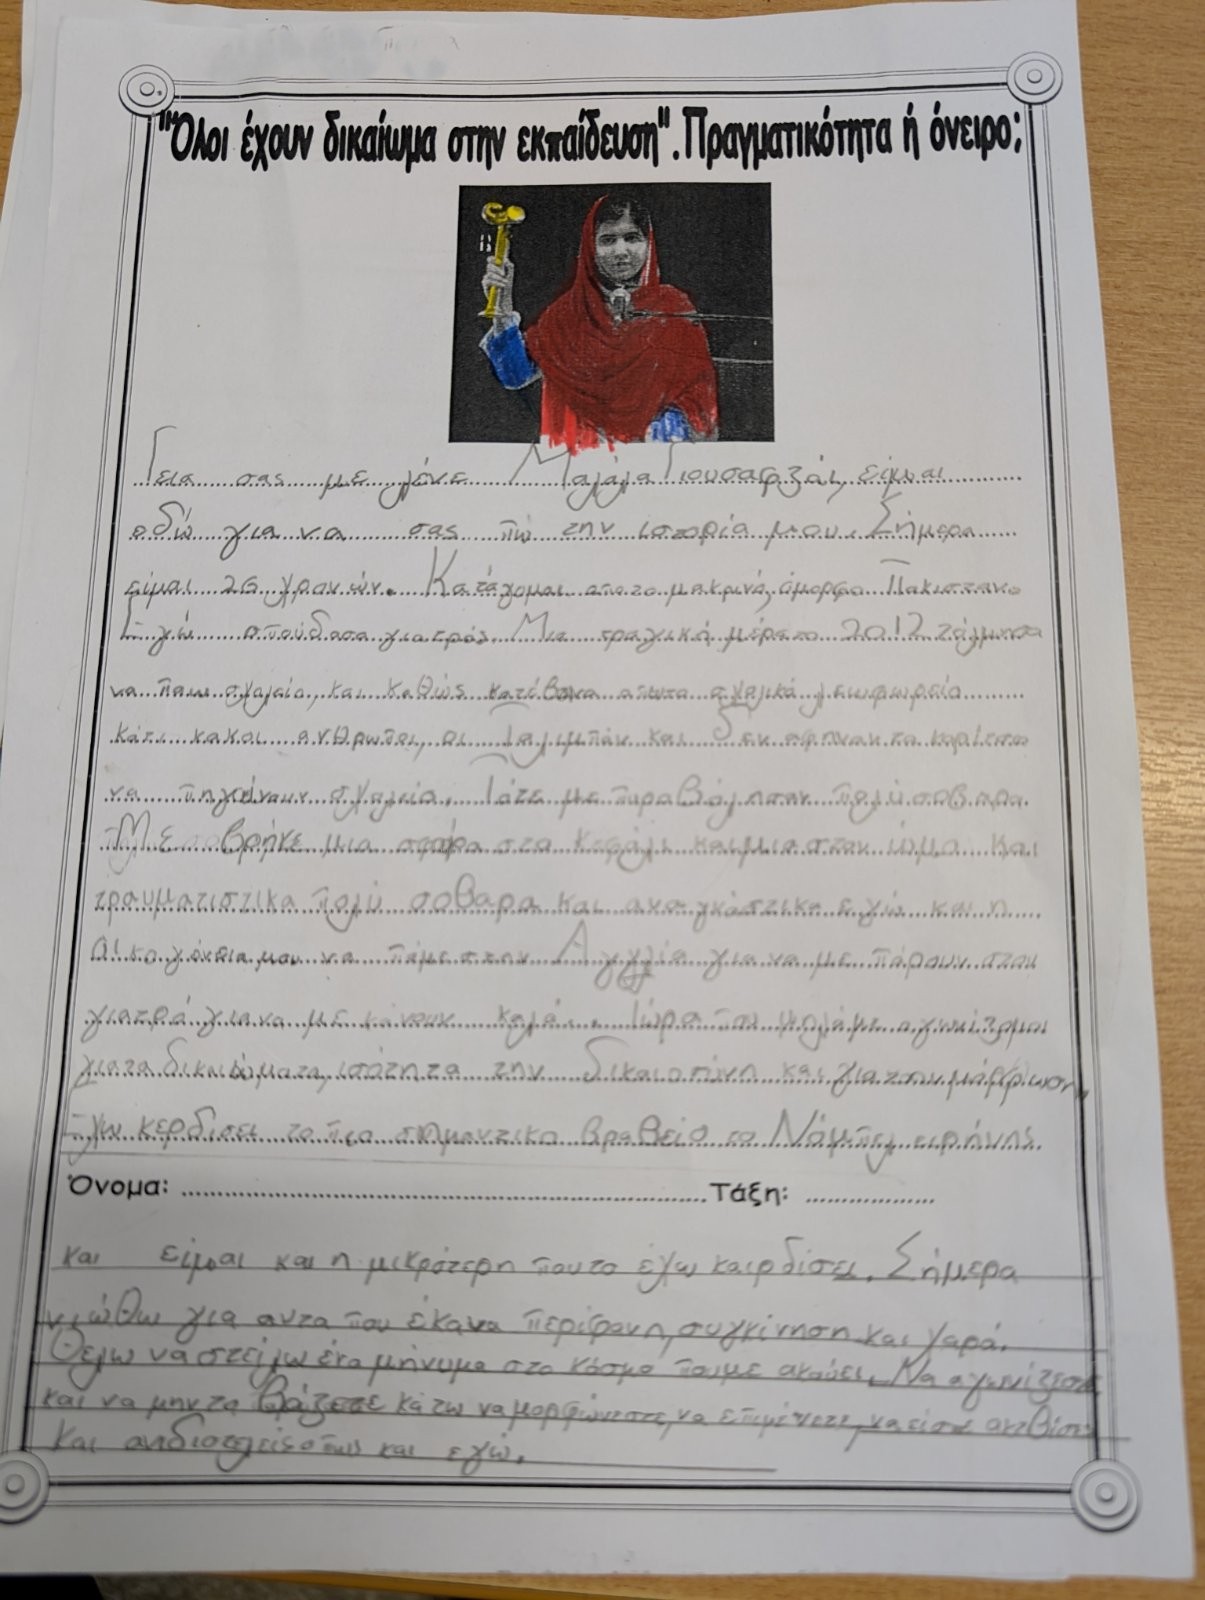 "Όλοι έχουν δικαίωμα στην εκπαίδευση". Πραγματικότητα ή όνειρο;
Γεια σας με λένε Μαλάλα Γιουσαφζάι, είμαι
εδώ για να σας πώ την ιστορία μου. Σήμερα
είμαι 26 χρονών. Κατάγομαι απο το μακρινό, όμορφο Πακιστάν.
Εγώ σπούδασα γιατρός. Μια τραγική μέρα το 2012 τόλμησα
να πάω σχολείο, και καθώς κατέβαινα απο το σχολικό λεωφορείο
κάτι κακοι ανθρωποι, οι Ταλιμπάν και δεν αφηναν τα κορίτσια
να πηγαίνουν σχολείο. Τότε με πυροβόλησαν πολύ σοβαρα.
Με βρήκε μια σφαίρα στο κεφάλι και μια στον ώμο και
τραυματιστικα πολύ σοβαρα και αναγκάστικα εγώ και η
οικογένεια μου να πάμε στην Αγγλία για να με πάρουν στου
γιατρό για να με κάνουν καλά. Τώρα που μηλάμε αγωνίζομαι
για τα δικαιώματα, ισότητα την δικαιοσύνη και για την μόρφωση,
Εχω κερδισει το πιο σημαντικο βραβείο το Νόμπελ ειρήνης.
Όνομα: Τάξη:
και είμαι και η μικρότερη που το έχω καιρδίσει. Σήμερα
νιώθω για αυτα που έκανα περίφανη, συγκίνηση και χαρά.
Θελω να στείλω ένα μήνυμα στο κόσμο που με ακούει. Να αγωνίζεστε
και να μην το βάζετε κάτω να μορφώνεστε, να επιμένετε, να είστε
και όπως και εγώ.